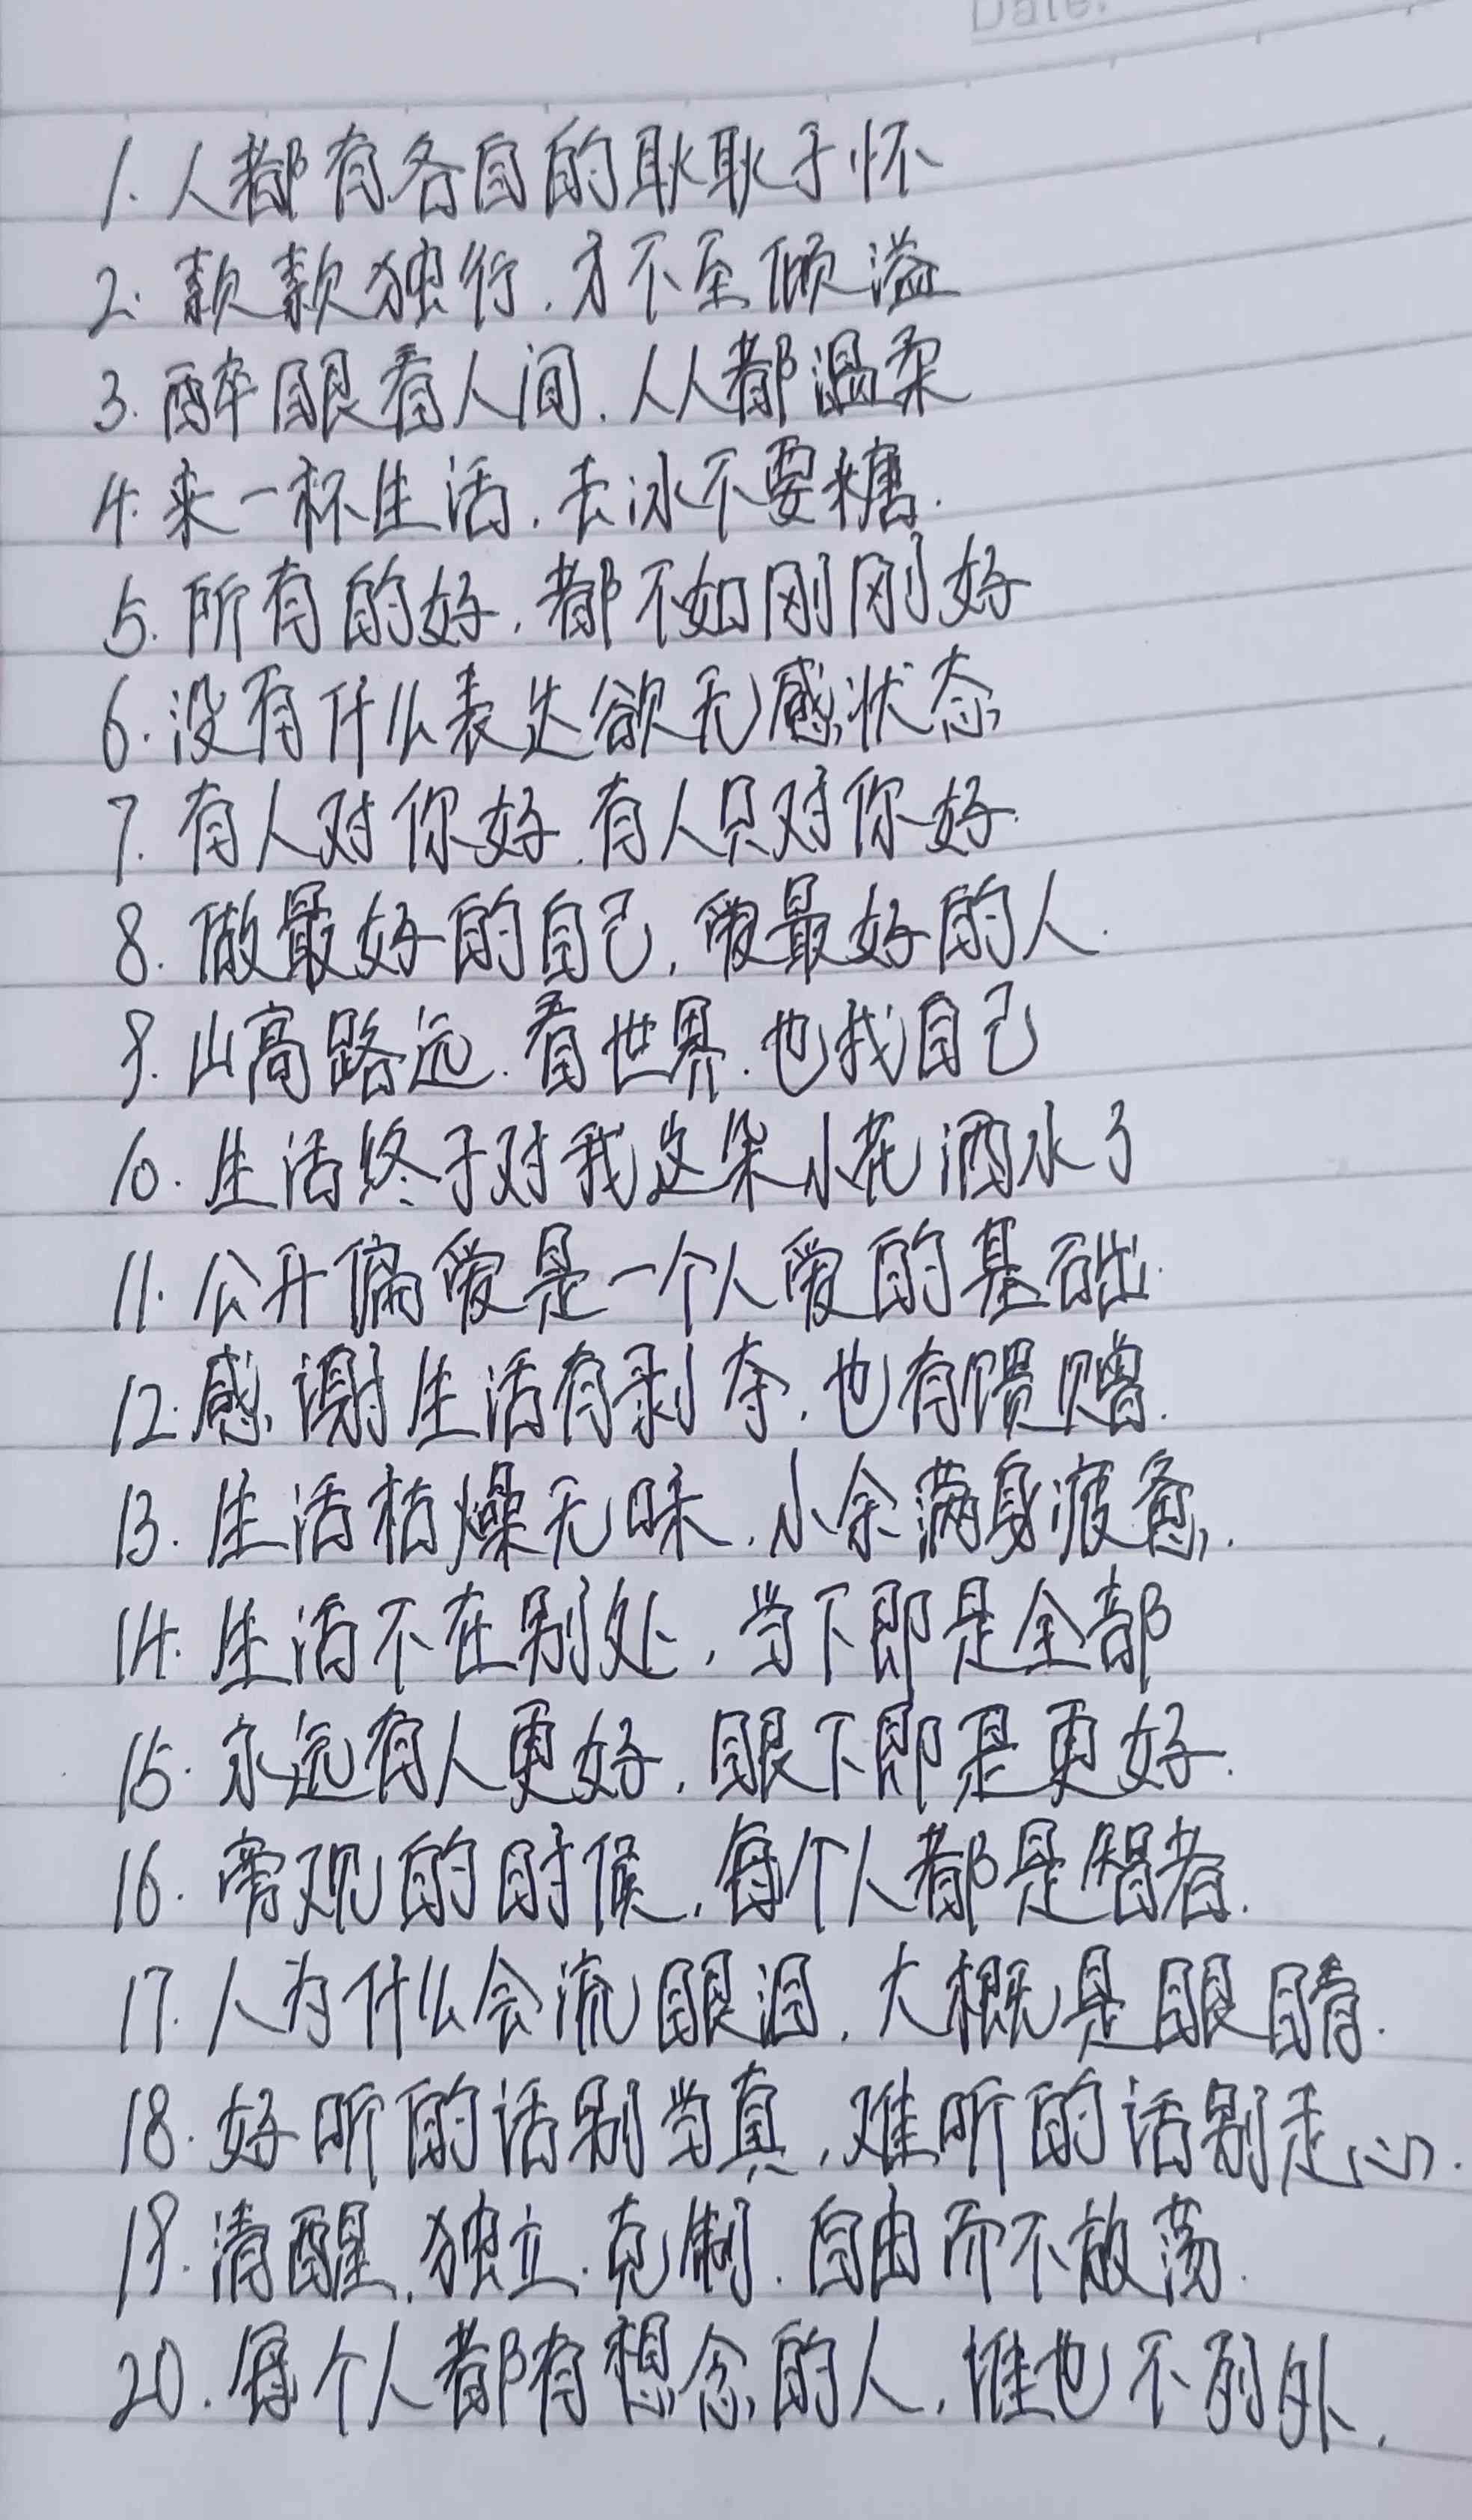 Date:
1. 人都有各自的耿耿于怀
2. 款款独行,才不至倾溢
3. 醉眼看人间,人人都温柔
4. 来一杯生活,去冰不要糖.
5. 所有的好,都不如刚刚好
6. 没有什么表达欲无感状态
7. 有人对你好.有人只对你好.
8. 做最好的自己,爱最好的人.
9. 山高路远.看世界.也找自己
10. 生活终于对我这朵小花洒水了
11. 公开偏爱是一个人爱的基础.
12. 感谢生活有剥夺,也有馈赠.
13. 生活枯燥无味,小余满身疲惫.
14. 生活不在别处,当下即是全部
15. 永远有人更好,眼下即是更好.
16. 旁观的时候,每个人都是智者.
17. 人为什么会流眼泪,大概是眼睛.
18. 好听的话别当真,难听的话别走心.
19. 清醒.独立.克制.自由而不放荡.
20. 每个人都有想念的人,谁也不列外.